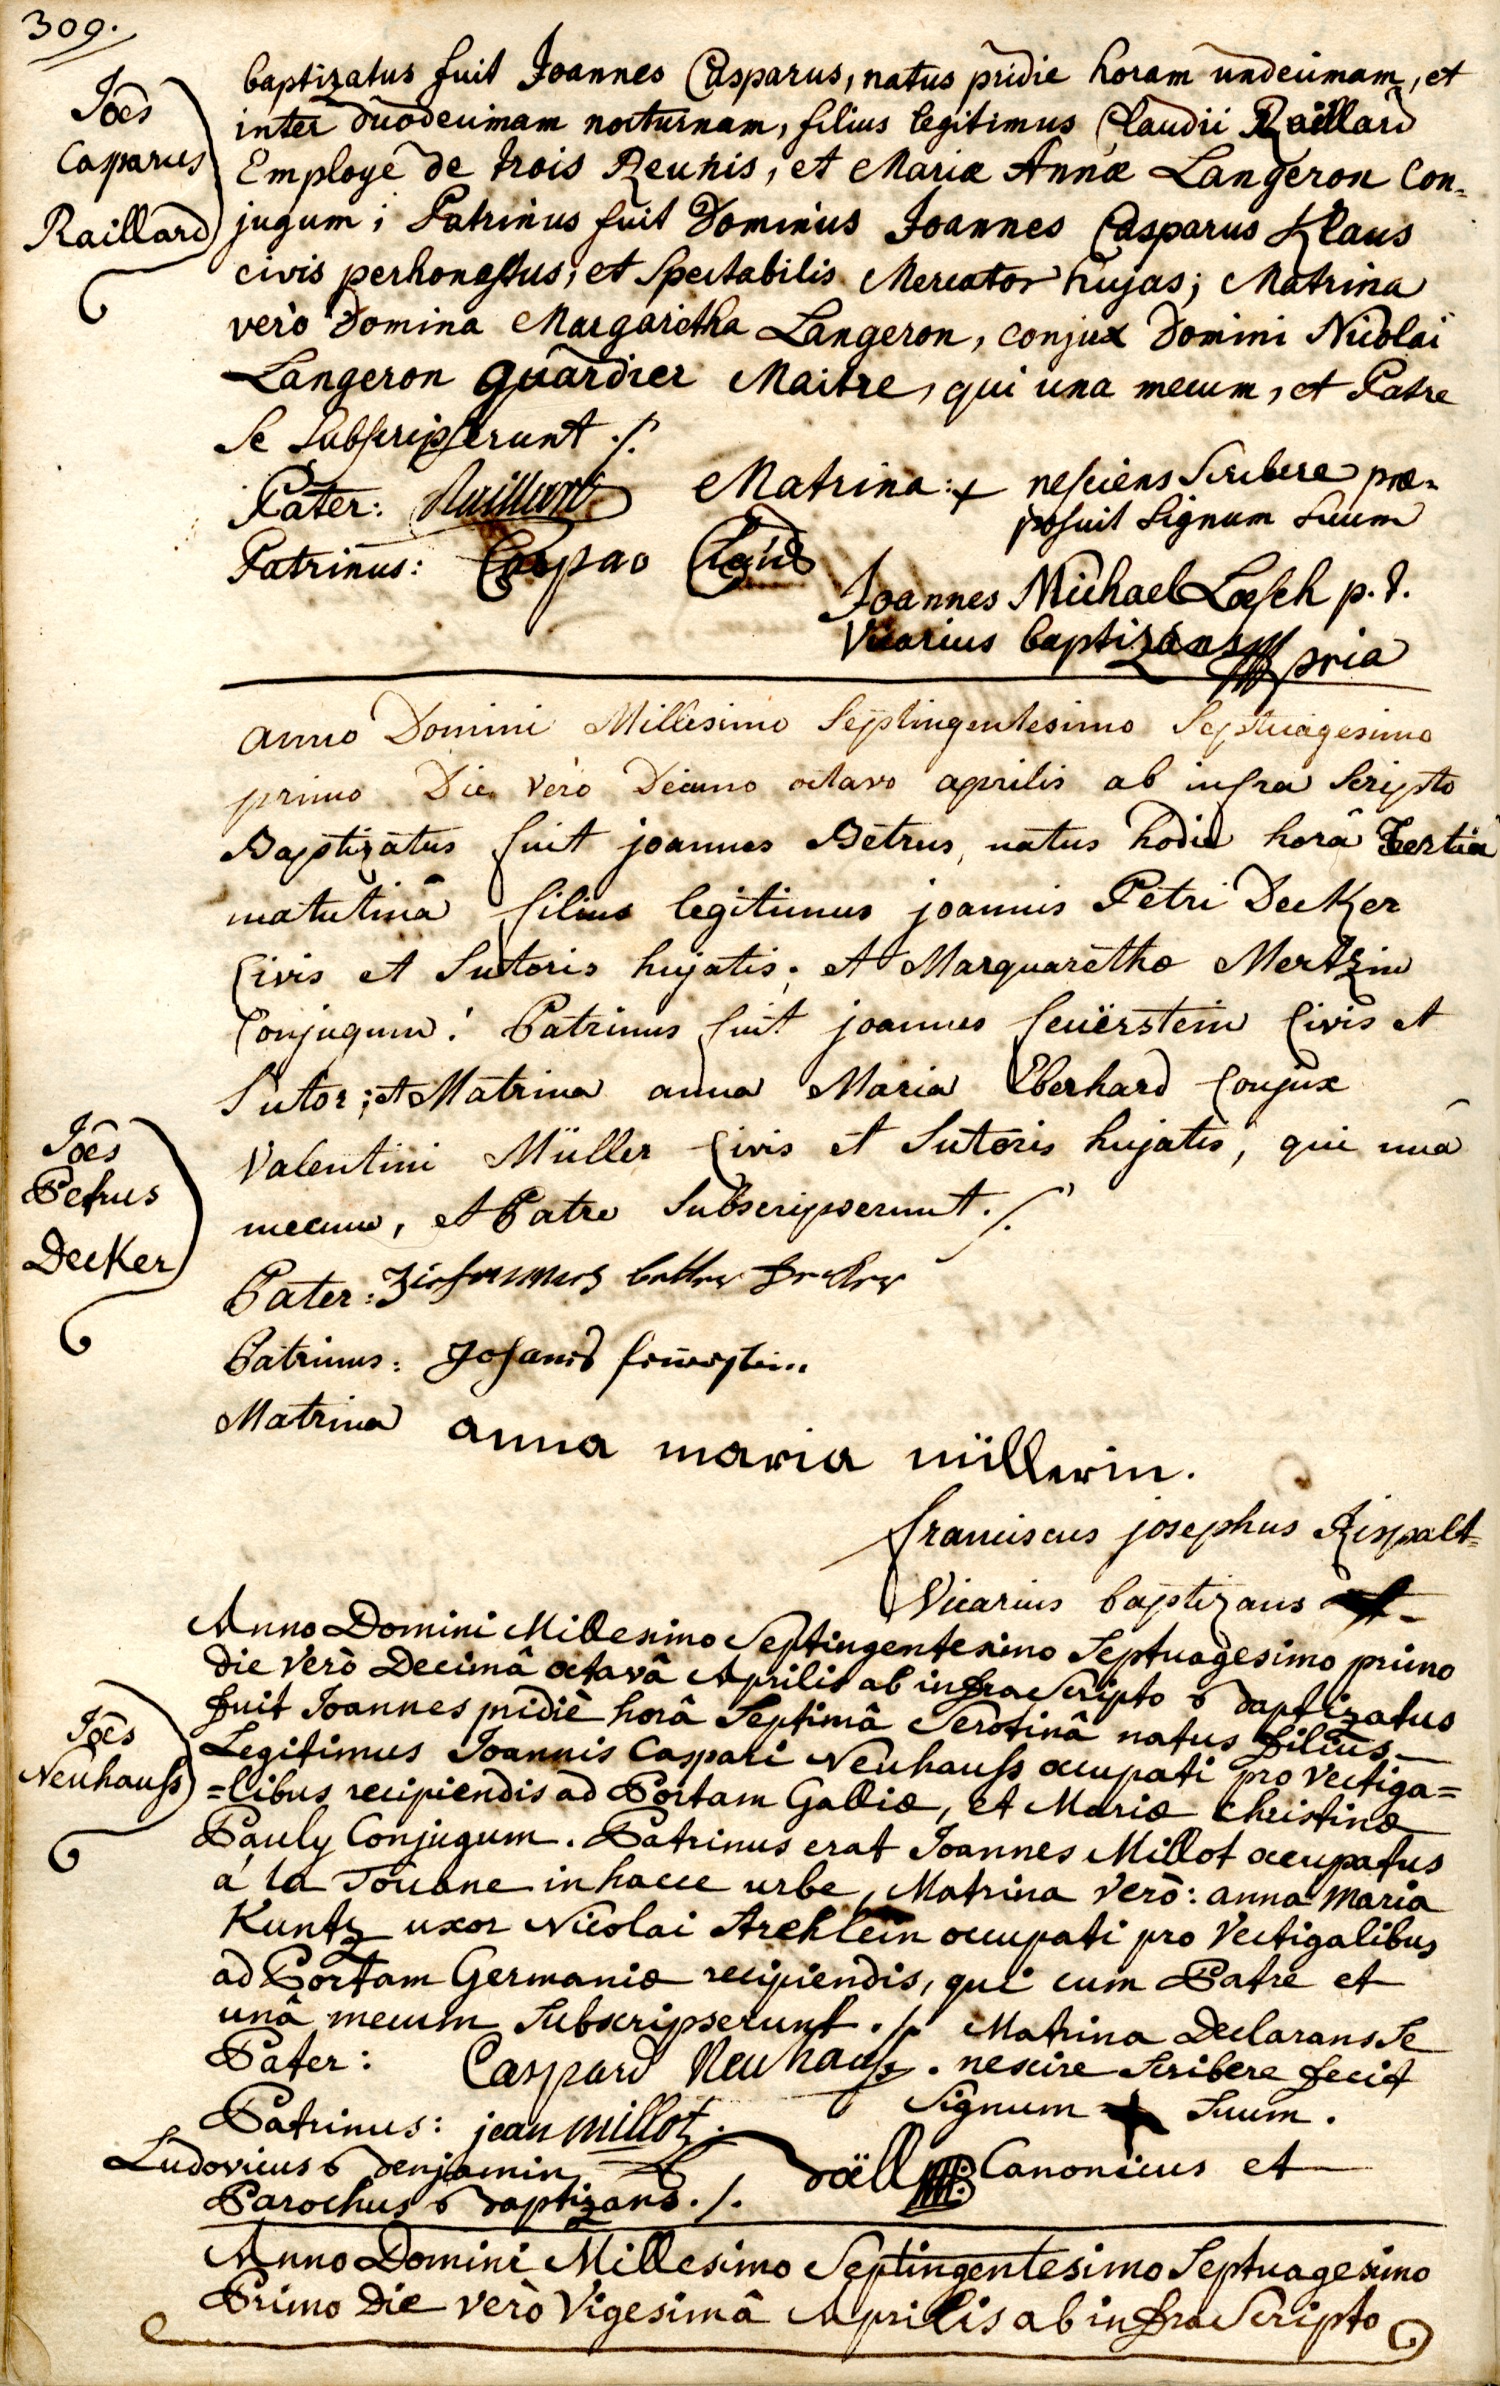 309.
Joês
Casparus
Raillard
baptizatus fuit Joannes Casparus, natus pridie horam undecimam, et
inter duodecimam nocturnam, filius legitimus Claudii Raillard
Employé de trois Reunis, et Mariæ Annæ Langeron Con-
jugum; Patrinus fuit Dominus Joannes Casparus Klaus
civis perhonestus, et Spectabilis Mercator hujas; Matrina
verò Domina Margaretha Langeron, conjux Domini Nicolai
Langeron Quardier Maitre, qui una mecum, et Patre
se Subscripserunt ./.
Pater: Raillard Matrina: + nesciens Scribere præ-
posuit Signum Suum
Patrinus: Caspar
Joannes Michael Loesch p. t.
Vicarius baptizans pria
anno Domini Millesimo Septingentesimo Septuagesimo
primo Die verò Decimo octavo aprilis ab infra Scripto
Baptizatus fuit joannes Petrus, natus hodie horâ Tertiâ
matutinâ filius legitimus joannis Petri Decker
Civis et Sutoris hujatis; et Marguaretha Mertzin
Conjugum! Patrinus fuit joannes feuerstein Civis et
Sutor; et Matrina anna Maria Eberhard Conjux
Valentini Müller Civis et Sutoris hujatis, qui unâ
mecum, et Patre Subscripserunt ./.
Joês
Petrus
Decker
Pater: Decker
Patrinus: Johanes feuerstein
Matrina anna maria müllerin.
franciscus josephus Rispalt
Vicarius baptizans
Anno Domini Millesimo Septingentesimo Septuagesimo primo
die verò Decimâ octavâ Aprilis ab infra Scripto baptizatus
fuit Joannes pridiè horâ Septimâ Serotinâ natus filius
Legitimus Joannis Caspari Neuhauss occupati pro vectiga=
=libus recipiendis ad Portam Galliæ, et Mariæ Christinæ
Pauly Conjugum. Patrinus erat Joannes Millot occupatus
á la Douane in hacce urbe, Matrina verò: anna Maria
Kuntz uxor Nicolai Arehlein occupati pro Vectigalibus
ad Portam Germaniæ recipiendis, qui cum Patre et
unâ mecum Subscripserunt ./. Matrina Declarans Se
Joês
Neuhauss
Pater: Caspard Neuhauss. nescire Scribere fecit
Signum + Suum.
Patrinus: jean millot
Ludovicus benjamin Döll Canonicus et
Parochus baptizans ./.
Anno Domini Millesimo Septingentesimo Septuagesimo
Primo Die verò Vigesimâ Aprilis ab infra Scripto